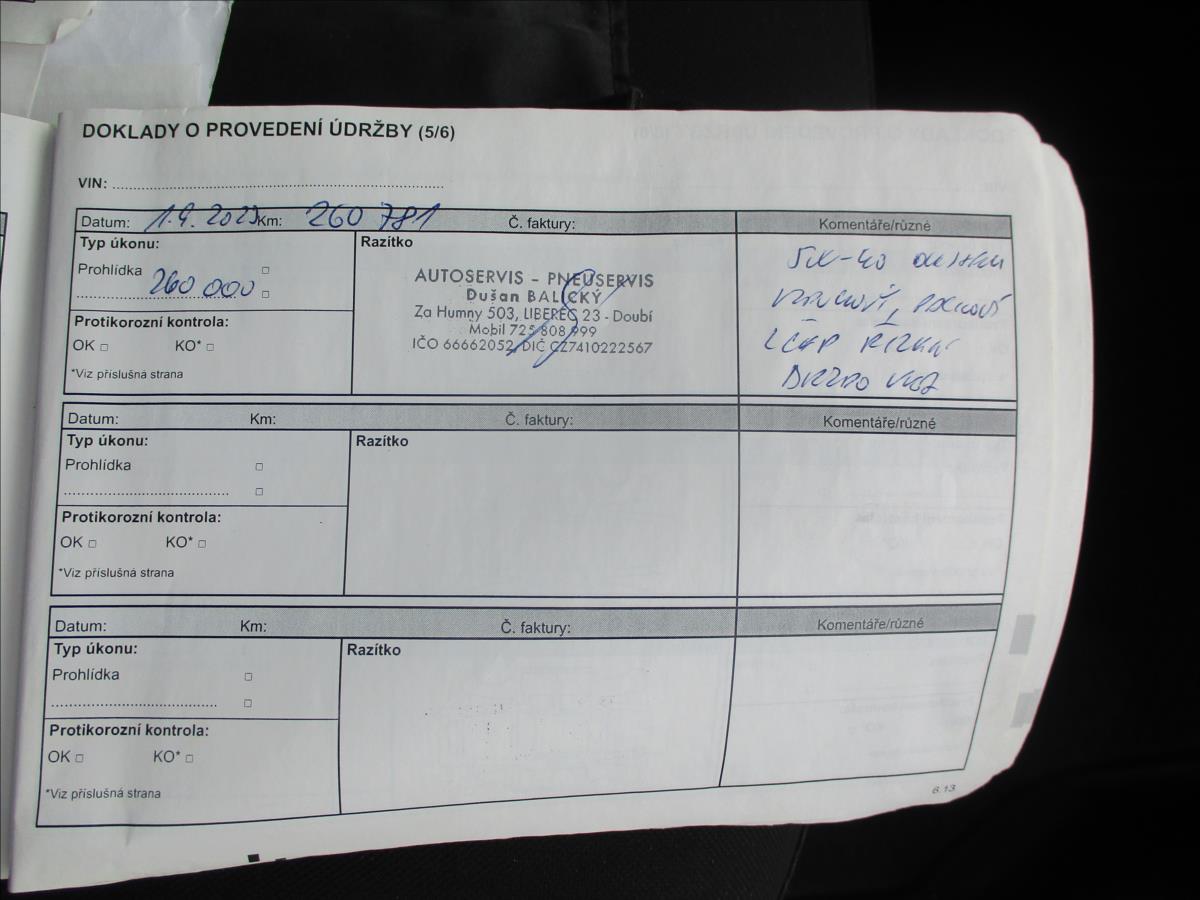 DOKLADY O PROVEDENÍ ÚDRŽBY (5/6)
VIN:
Datum: 1.9.2023 Km: 260 781 Č. faktury: Komentáře/různé
Typ úkonu:
Prohlídka
260 000
Protikorozní kontrola:
OK KO*
*Viz příslušná strana
Razítko
AUTOSERVIS - PNEUSERVIS
Dušan BALICKÝ
Za Humny 503, LIBEREC 23 - Doubí
Mobil 725 808 999
IČO 66662052, DIČ CZ7410222567
5W-40
VZDUCHOVÝ, POCHOVÝ
Datum: Km: Č. faktury: Komentáře/různé
Typ úkonu:
Prohlídka
Protikorozní kontrola:
OK KO*
*Viz příslušná strana
Razítko
Datum: Km: Č. faktury: Komentáře/různé
Typ úkonu:
Prohlídka
Protikorozní kontrola:
OK KO*
*Viz příslušná strana
Razítko
6.13